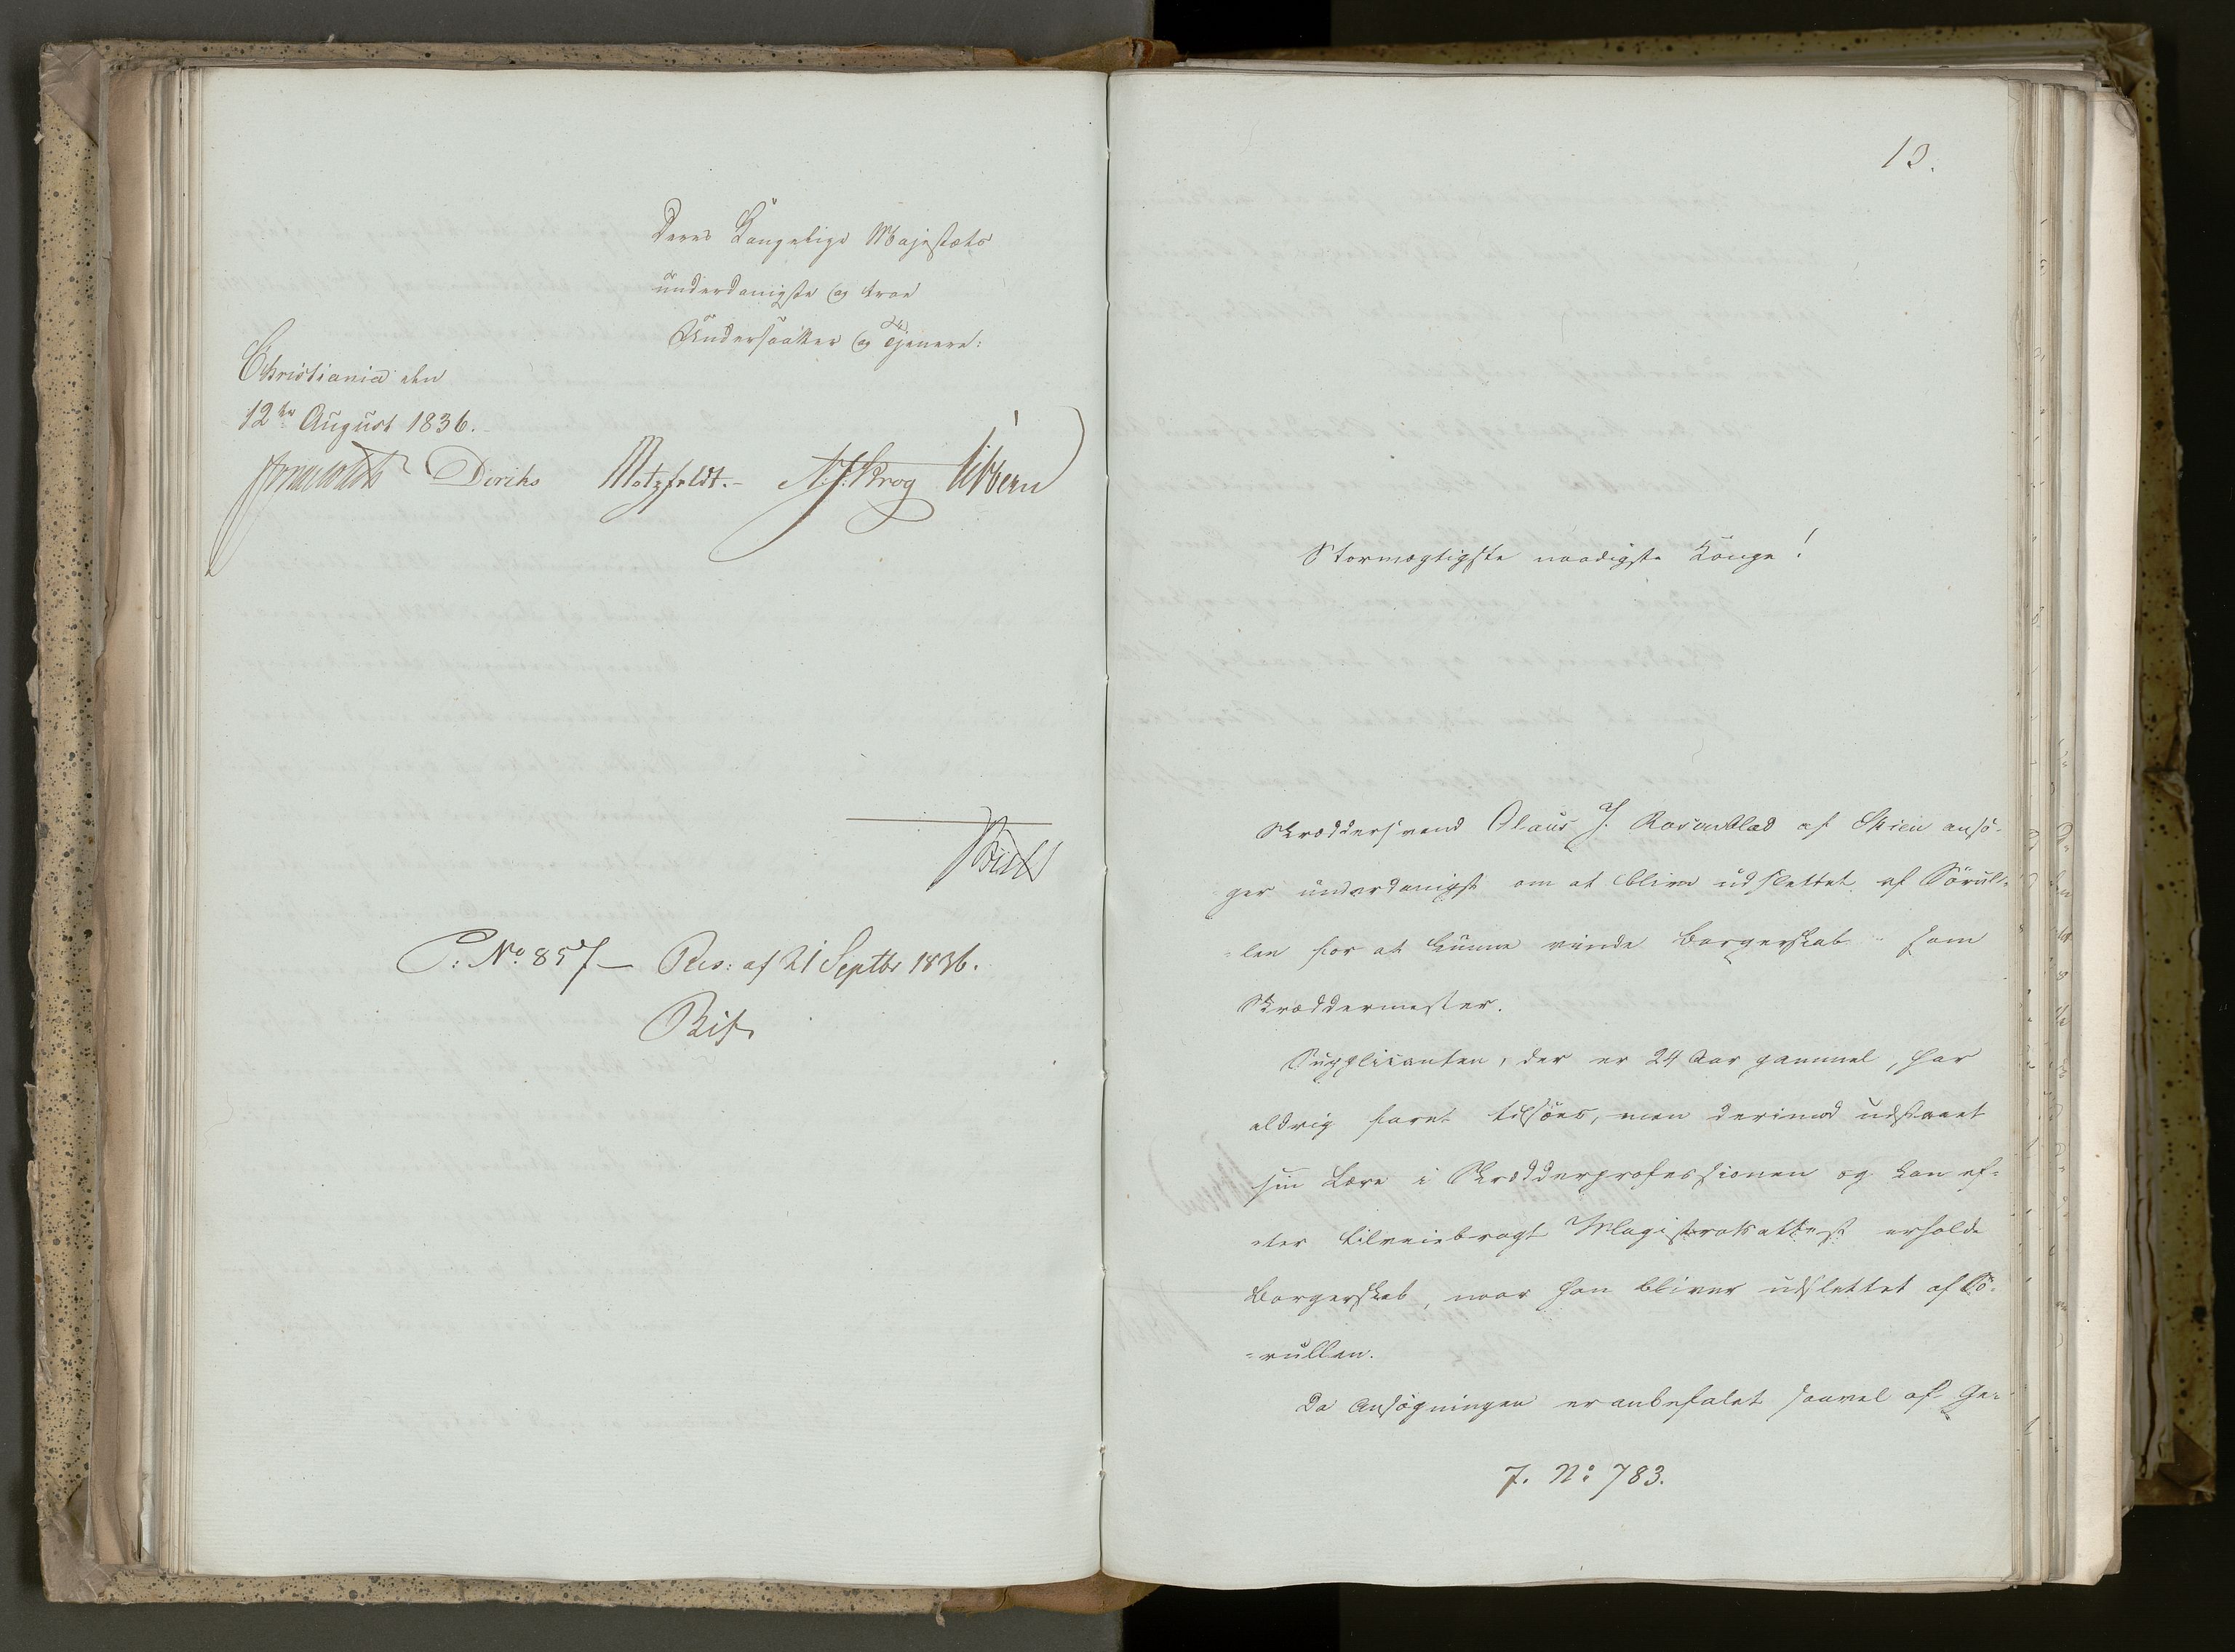 Deres Kongelige Majestæts
underdanigste og troe
Undersaatter og Tjenere:
Christiania den
12te August 1836.
Diriks Motzfeldt.- N. J. Krog Vibern
C. No. 857 — Res: af 21 Septbr 1836.
13.
Stormægtigste naadigste Konge!
Skræddersvend Olaus J. Rosenblad af Skien ansö-
ger underdanigst om at blive udslettet af Sörul-
len for at kunne vinde Borgerskab som
Skræddermester.
Supplicanten, der er 24 Aar gammel, har
aldrig faret tilsöes, men derimod udstaaet
sin Lære i Skrædderprofessionen og kan ef-
ter tilveiebragt Magistratsattest erholde
Borgerskab, naar han bliver udslettet af Sö-
rullen.
Da Ansögningen er anbefalet saavel af Ge-
7. No: 783.